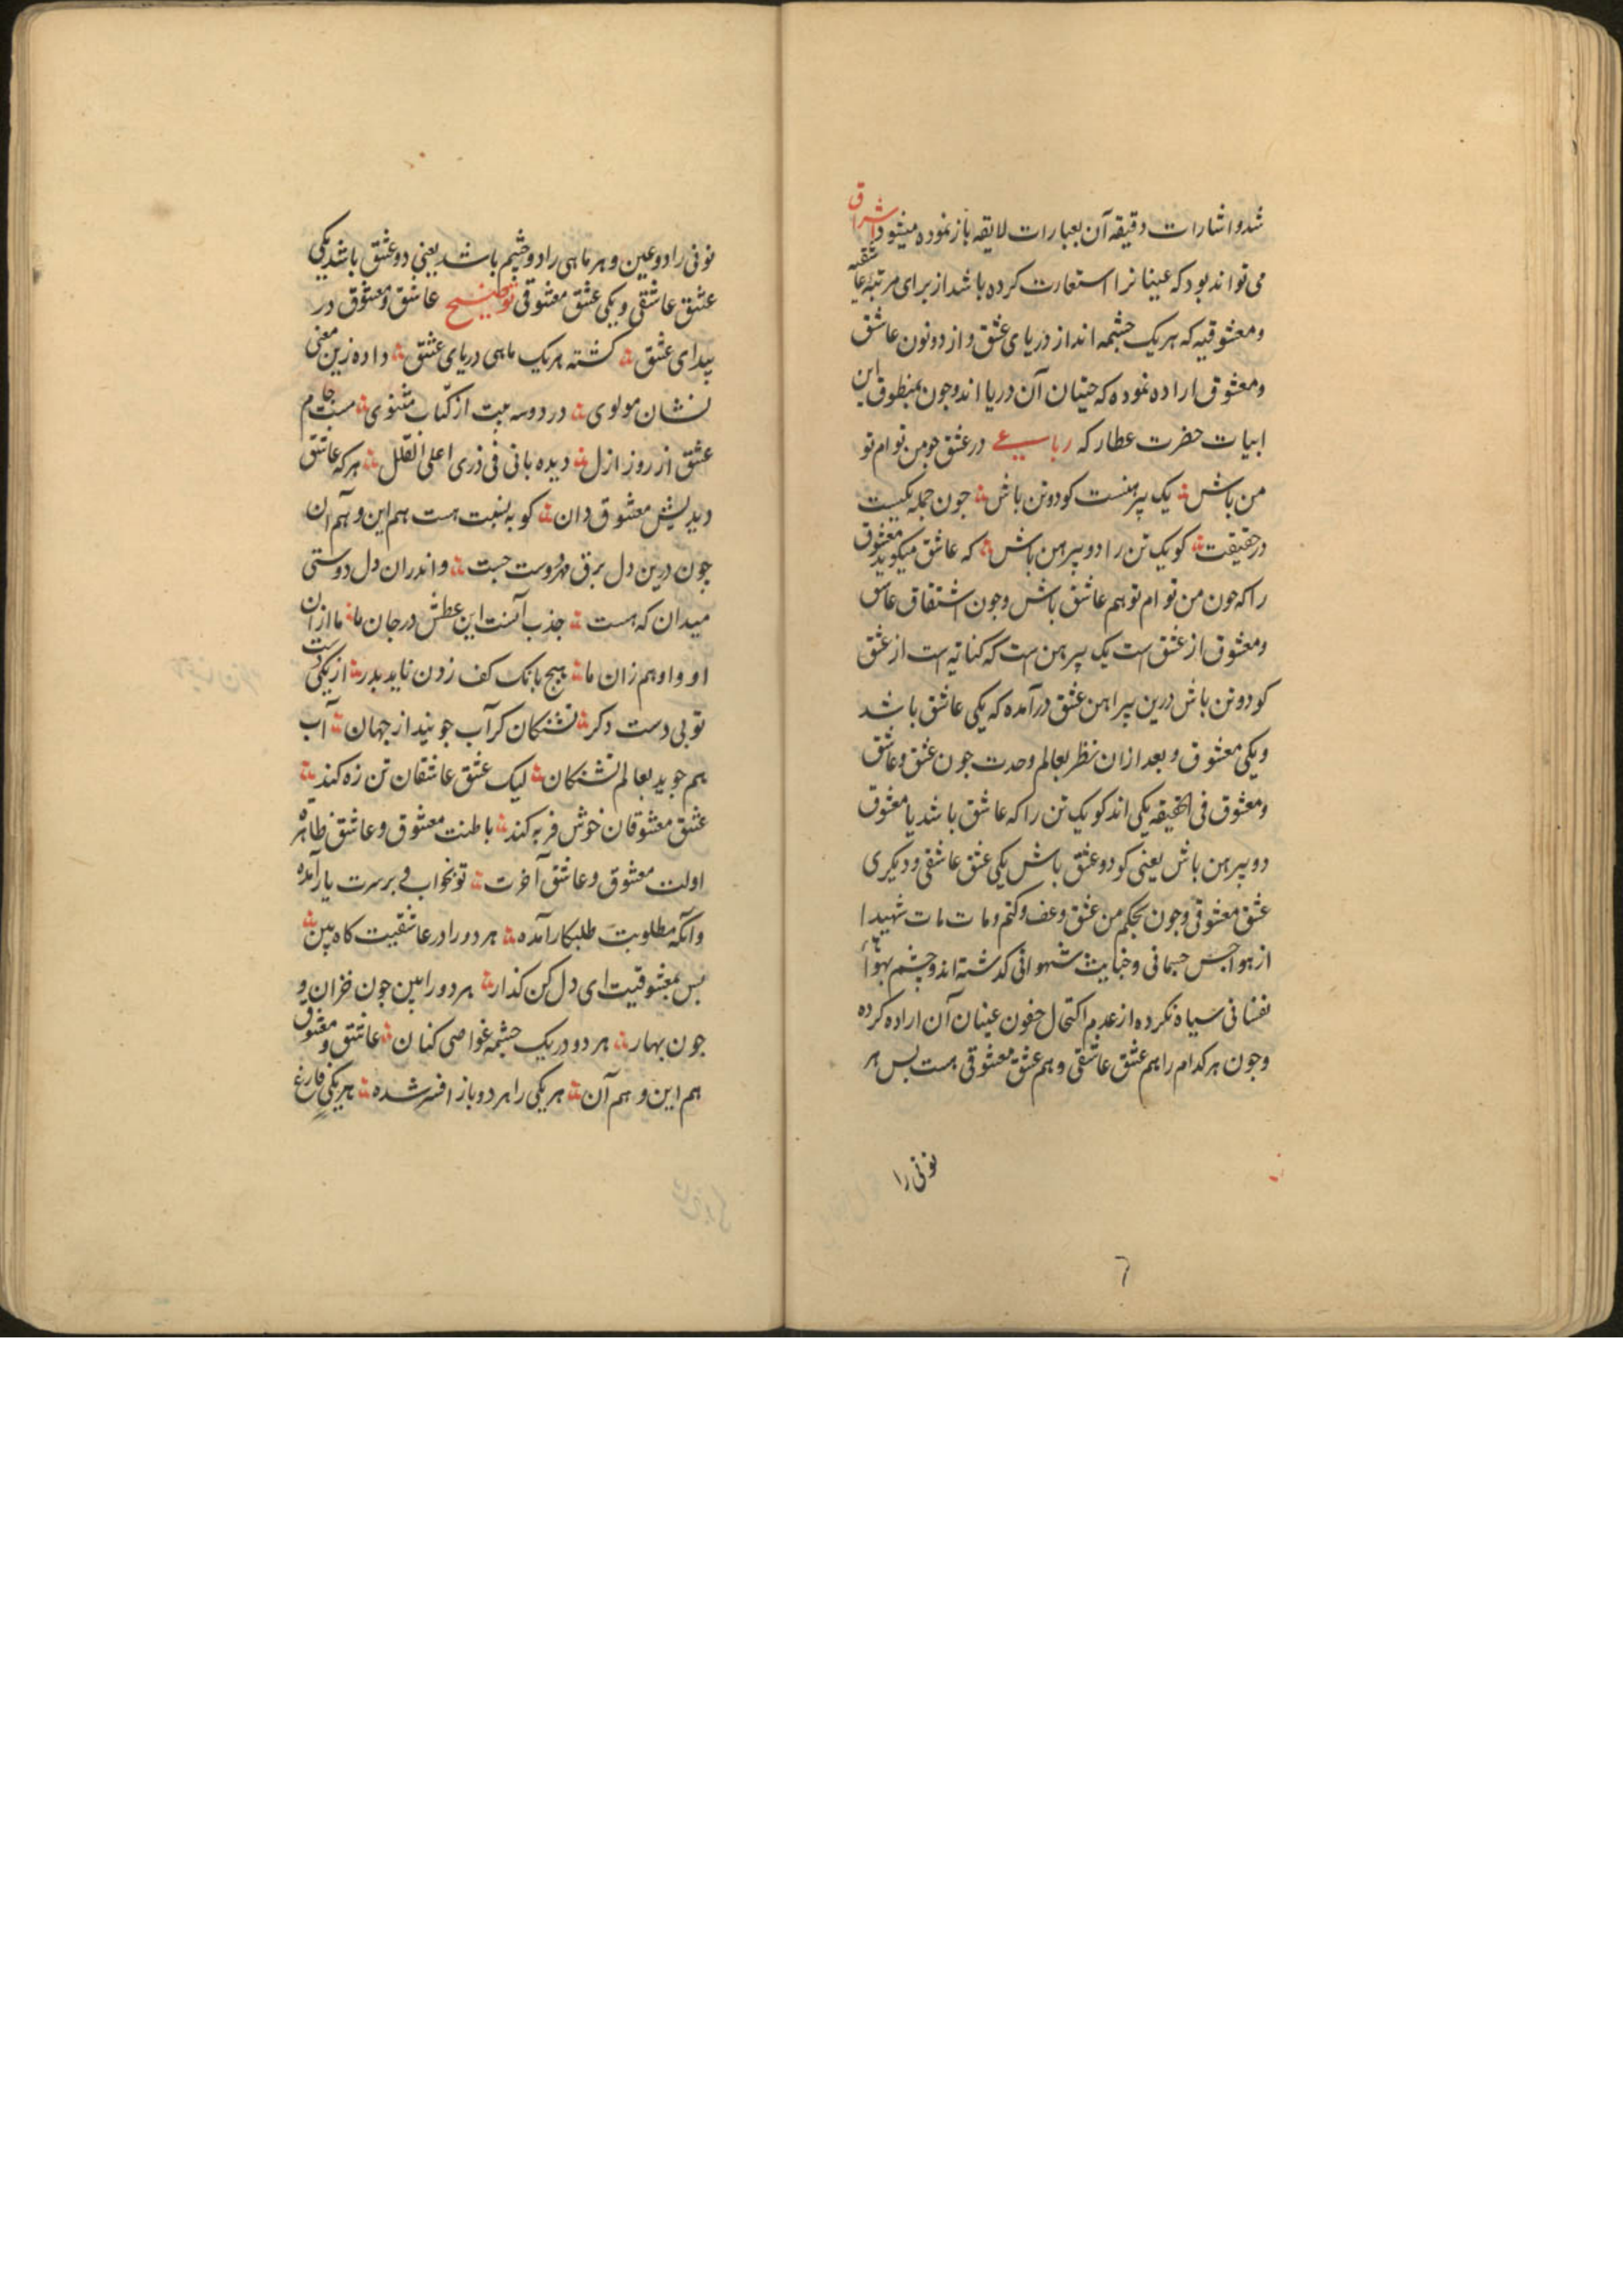 شد و اشارات دقیقه آن بعبارات لایقه باز نموده میشود اشراق
می تواند بود که عینانرا استعارت کرده باشد از برای مرتبهٔ عاشقیه
و معشوقیه که هر یک چشمه اند از دریای عشق و از دو نون عاشق
و معشوق اراده نموده که حیتان آن دریا اند و جون بمنطوق این
ابیات حضرت عطار که رباعی در عشق جو من توام تو
من باش یک پیرهنست کو دو تن باش جون جمله یکیست
در حقیقت کو یک تن را دو پیرهن باش که عاشق میکوید معشوق
را که جون من توام تو هم عاشق باش و جون اشتقاق عاشق
و معشوق از عشق است یک پیرهن است که کنایه است از عشق
کو دو تن باش درین پیراهن عشق درآمده که یکی عاشق باشد
و یکی معشوق و بعد ازان نظر بعالم وحدت جون عشق و عاشق
و معشوق فی الحقیقه یکی اند کو یک تن را که عاشق باشد یا معشوق
دو پیرهن باش یعنی کو دو عشق باش یکی عشق عاشقی و دیکری
عشق معشوقی و جون بحکم من عشق و عف و کتم و مات مات شهیدا
از هواجس جسمانی و خبایث شهوانی کذشته اند و چشم بهواء
نفسانی سیاه نکرده از عدم اکتحال جفون عینان آن اراده کرده
و جون هر کدام را هم عشق عاشقی و هم عشق معشوقی هست بس هر
نونی را
٦
نونی را دو عین و هر ماهی را دو چشم باشد یعنی دو عشق باشد یکی
عشق عاشقی و یکی عشق معشوقی توضیح عاشق و معشوق در
بیدای عشق کشته هر یک ماهی دریای عشق داده زین معنی
نشان مولوی در دو سه بیت از کتاب مثنوی مست جام
عشق از روز ازل دیده بانی فی ذری اعلی القلل هر که عاشق
دیدیش معشوق دان کو به نسبت هست هم این و هم آن
جون درین دل برق مهر دوست جست و اندران دل دوستی
میدان که هست جذب آبست این عطش در جان ما ما ازان
او و او هم زان ما هیج بانک کف زدن ناید بدر از یکی دست
تو بی دست دکر تشنکان کر آب جویند از جهان آب
هم جوید بعالم تشنکان لیک عشق عاشقان تن زه کند
عشق معشوقان خوش فربه کند باطنت معشوق و عاشق ظاهره
اولت معشوق و عاشق آخرت تو بخواب و بر سرت یار آمده
وآنکه مطلوبت طلبکار آمده هر دو را در عاشقیت کاه بین
بس بمعشوقیت ای دل کن کذار هر دو را بین جون خزان و
جون بهار هر دو در یک چشمه غواصی کنان عاشق و معشوق
هم این و هم آن هر یکی را هر دو باز افسر شده هر یکی فارغ